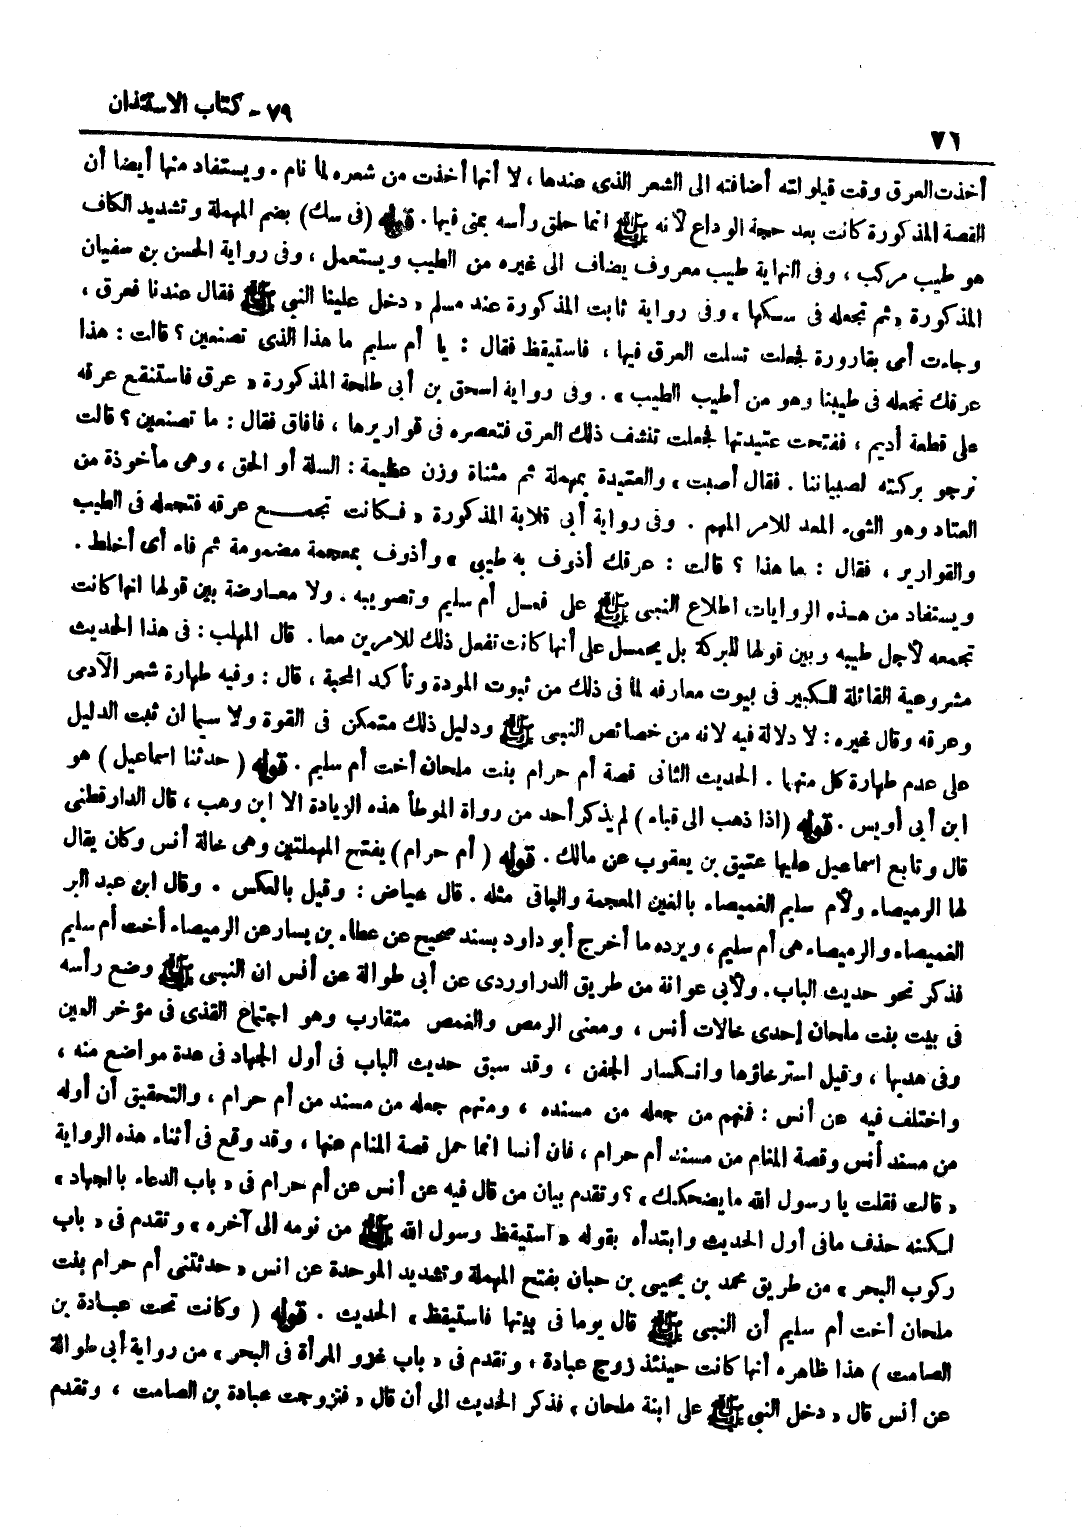 ٧٩ - كتاب الاستئذان
٧٦
أخذت العرق وقت قيلولته أضافته الى الشعر الذى عندها ، لا أنها أخذت من شعره لما نام . ويستفاد منها أيضا أن
القصة المذكورة كانت بعد حجة الوداع لأنه ﷺ انما حلق رأسه بمنى فيها . قوله (فى سك) بضم المهملة وتشديد الكاف
هو طيب مركب ، وفى النهاية طيب معروف يضاف الى غيره من الطيب ويستعمل ، وفى رواية الحسن بن سفيان
المذكورة « ثم تجعله فى سكها » وفى رواية ثابت المذكورة عند مسلم « دخل علينا النبى ﷺ فقال عندنا فعرق ،
وجاءت أمى بقارورة فجعلت تسلت العرق فيها ، فاستيقظ فقال : يا أم سليم ما هذا الذى تصنعين ؟ قالت : هذا
عرقك نجعله فى طيبنا وهو من أطيب الطيب » . وفى رواية اسحق بن أبى طلحة المذكورة « عرق فاستنقع عرقه
على قطعة أديم ، ففتحت عتيدتها فجعلت تنشف ذلك العرق فتعصره فى قواريرها ، فأفاق فقال : ما تصنعين ؟ قالت
نرجو بركته لصبياننا . فقال أصبت » والعتيدة بمهملة ثم مثناة وزن عظيمة : السلة أو الحق ، وهى مأخوذة من
العتاد وهو الشىء المعد للامر المهم . وفى رواية أبى قلابة المذكورة « فكانت تجمع عرقه فتجعله فى الطيب
والقوارير ، فقال : ما هذا ؟ قالت : عرقك أذوف به طيبى » وأذوف بمعجمة مضمومة ثم فاء أى أخلط .
ويستفاد من هذه الروايات اطلاع النبى ﷺ على فعل أم سليم وتصويبه . ولا معارضة بين قولها انها كانت
تجمعه لأجل طيبه وبين قولها للبركة بل يحمل على أنها كانت تفعل ذلك للامرين معا . قال المهلب : فى هذا الحديث
مشروعية القائلة للكبير فى بيوت معارفه لما فى ذلك من ثبوت المودة وتأكد المحبة ، قال : وفيه طهارة شعر الآدمى
وعرقه وقال غيره : لا دلالة فيه لانه من خصائص النبى ﷺ ودليل ذلك متمكن فى القوة ولا سيما ان ثبت الدليل
على عدم طهارة كل منهما . الحديث الثانى قصة أم حرام بنت ملحان أخت أم سليم . قوله ( حدثنا اسماعيل ) هو
ابن أبى أويس . قوله (اذا ذهب الى قباء ) لم يذكر أحد من رواة الموطأ هذه الزيادة الا ابن وهب ، قال الدارقطنى
قال وتابع اسماعيل عليها عتيق بن يعقوب عن مالك . قوله ( أم حرام ) بفتح المهملتين وهى خالة أنس وكان يقال
لها الرميصاء ولأم سليم الغميصاء بالغين المعجمة والباقى مثله . قال عياض : وقيل بالعكس . وقال ابن عبد البر
الغميصاء والرميصاء هى أم سليم ، ويرده ما أخرج أبو داود بسند صحيح عن عطاء بن يسار عن الرميصاء أخت أم سليم
فذكر نحو حديث الباب . ولأبى عوانة من طريق الدراوردى عن أبى طوالة عن أنس ان النبى ﷺ وضع رأسه
فى بيت بنت ملحان إحدى خالات أنس ، ومعنى الرمص والغمص متقارب وهو اجتماع القذى فى مؤخر العين
وفى هدبها ، وقيل استرخاؤها وانكسار الجفن ، وقد سبق حديث الباب فى أول الجهاد فى عدة مواضع منه ،
واختلف فيه عن أنس : فمنهم من جعله من مسنده ، ومنهم جعله من مسند من أم حرام ، والتحقيق أن أوله
من مسند أنس وقصة المنام من مسند أم حرام ، فان أنسا انما حمل قصة المنام عنها ، وقد وقع فى أثناء هذه الرواية
« قالت فقلت يا رسول الله ما يضحكك » ؟ وتقدم بيان من قال فيه عن أنس عن أم حرام فى « باب الدعاء بالجهاد »
لكنه حذف مافى أول الحديث وابتدأه بقوله « استيقظ رسول الله ﷺ من نومه الى آخره » وتقدم فى « باب
ركوب البحر » من طريق محمد بن يحيى بن حبان بفتح المهملة وتشديد الموحدة عن انس « حدثتنى أم حرام بنت
ملحان أخت أم سليم أن النبى ﷺ قال يوما فى بيتها فاستيقظ » الحديث . قوله ( وكانت تحت عبادة بن
الصامت ) هذا ظاهره أنها كانت حينئذ زوج عبادة ، وتقدم فى « باب غزو المرأة فى البحر » من رواية أبى طوالة
عن أنس قال « دخل النبى ﷺ على ابنة ملحان » فذكر الحديث الى أن قال « فتزوجت عبادة بن الصامت ، وتقدم